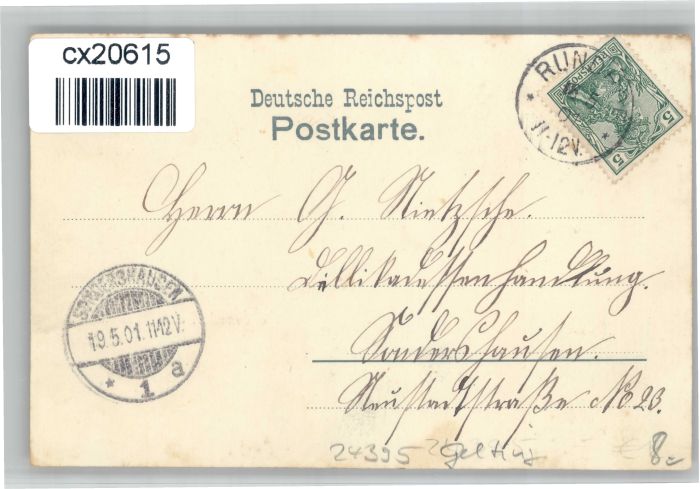 cx20615
Deutsche Reichspost
Postkarte.
RUN
11-12V.
5
5
Herrn G. Nietzsche.
Dellikadessenhandlung.
Sondershausen.
Neustadtstraße No 23.
SONDERSHAUSEN
19.5.01. 11-12V.
* 1 a
24395
8.-